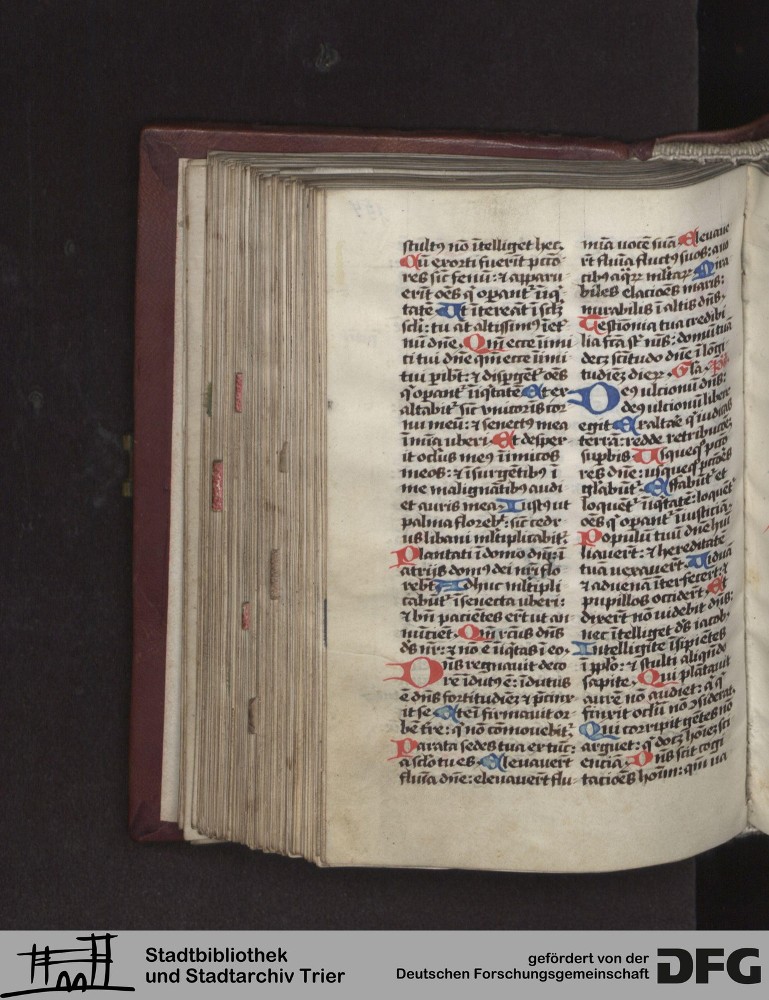 stultꝰ nō ītelliget hec.
Cū exorti fuerīt pctō
res sic fenū: ⁊ apparu
erīt oēs q̇ operant̄ īiq̇
tatē Ut ītereāt ī sclm̄
scli: tu aūt altissimꝰ ī et̄
nū dn̄e. Qm̄ ecce īimi
ci tui dn̄e qm̄ ecce īimi
tui pībt: ⁊ dispgēt̄ oēs
q̇ operant̄ īiq̇tatē Et ex
altabit̄ sic vnicornis cor
nu meū: ⁊ senectꝰ mea
ī mīa uberi Et despex
it oclus meꝰ īimicos
meos: ⁊ īsurgētibꝰ ī
me malignātibꝰ audi
et auris mea Iustꝰ ut
palma florebt̄: sic cedr
us libani mltiplicabit̄.
Plantati ī domo dn̄i: ī
atrijs domꝰ dei nr̄i flo
rebt̄ Adhuc mltipli
cabūt̄ ī senecta uberi:
⁊ bn̄ paciētes ert ut an
nūciēt Qm̄ rectus dn̄s
ds nr̄: ⁊ nō ē īiq̇tas ī eo.
Dn̄s regnauit deco
rē īdutꝰ ē: īdutus
ē dn̄s fortitudīe ⁊ p̄cinx
it se Etēi firmauit or
bē tr̄e: q̇ nō cōmouebit̄.
Parata sedes tua ex tūc:
a sclo tu es Eleuauert
fluīa dn̄e: eleuauert flu
mīa uocē suā Eleuaue
rt fluīa fluctꝰ suos: a uo
cibꝰ aq̄ꝝ mltaꝝ Mira
biles elacioēs maris:
mirabilis ī altis dn̄s.
Testionia tua credibi
lia fca sr̄ nīs: domū tuā
decꝫ scītudo dn̄e ī lōgi
tudīeꝫ dieꝝ Gla Ps
Deꝰ ulcionū dn̄s:
deꝰ ulcionū libere
egit Exaltar̄ q̇ iudicas
terrā: redde retribucōeꝫ
supbis Usqueq̇ pctō
res dn̄e: usqueq̇ pctōres
glābunt̄ Effabūt̄ et
loquēt̄ īiq̇tatē: loquēt̄
oēs q̇ operant̄ īiusticiā
Populū tuū dn̄e hūi
liauert: ⁊ hereditatē
tuā uexauert Uiduā
⁊ aduenā īterfecert: ⁊
pupillos occidert Et
dixert nō uidebit dn̄s:
nec ītelliget ds iacob.
Intelligite īsipiētes
ī pplo: ⁊ stulti aliqn̄do
sapite. Qui plātauit
aurē nō audiet: a q̇
finxit oclū nō ꝯsiderat.
Qui corripit gētes nō
arguet: q̇ docꝫ hoīeꝫ sci
enciā Dn̄s scit cogi
tacioēs hoīm: qm̄ ua
Stadtbibliothek
und Stadtarchiv Trier
gefördert von der
Deutschen Forschungsgemeinschaft
DFG